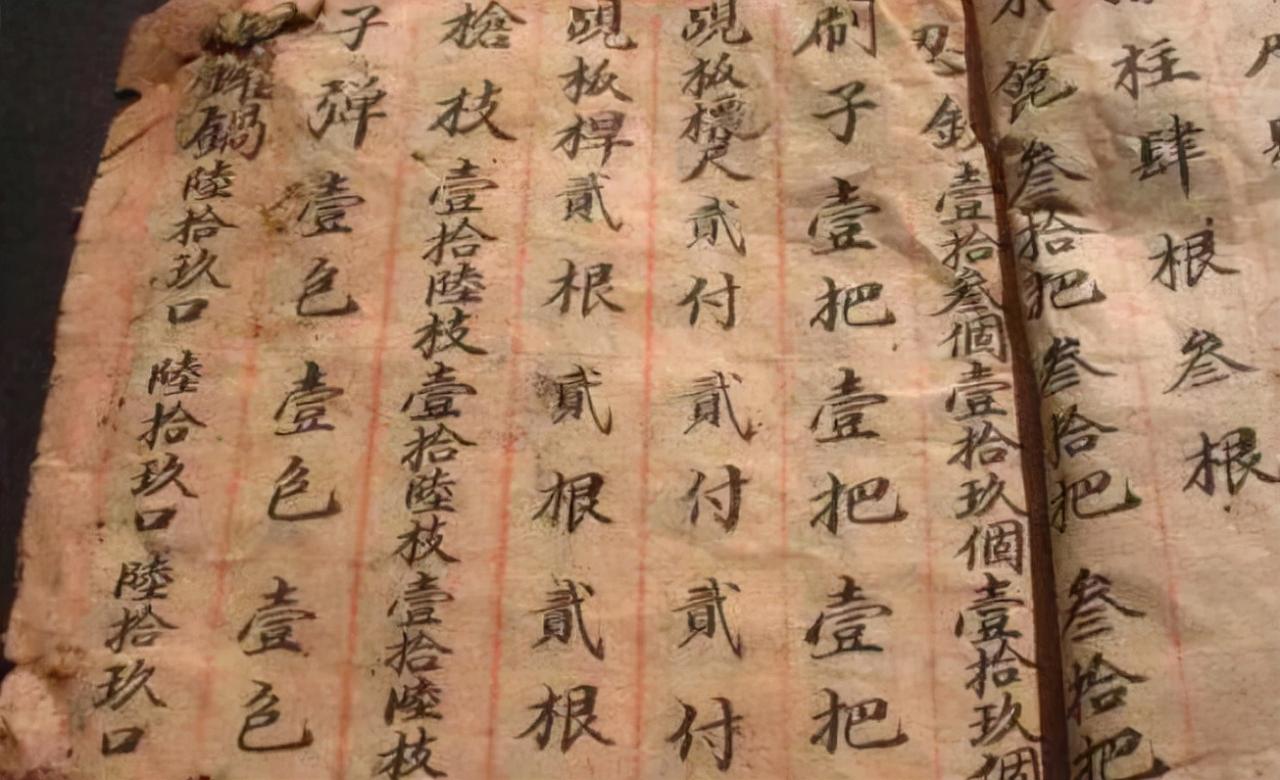 柱肆根叁根
叁拾把叁拾把叁拾把
壹拾叁個壹拾玖個壹拾玖個
刷子壹把壹把壹把
板尺貳付貳付貳付
板桿貳根貳根貳根
槍枝壹拾陸枝壹拾陸枝壹拾陸枝
子弹壹色壹色壹色
鍋陸拾玖口陸拾玖口陸拾玖口